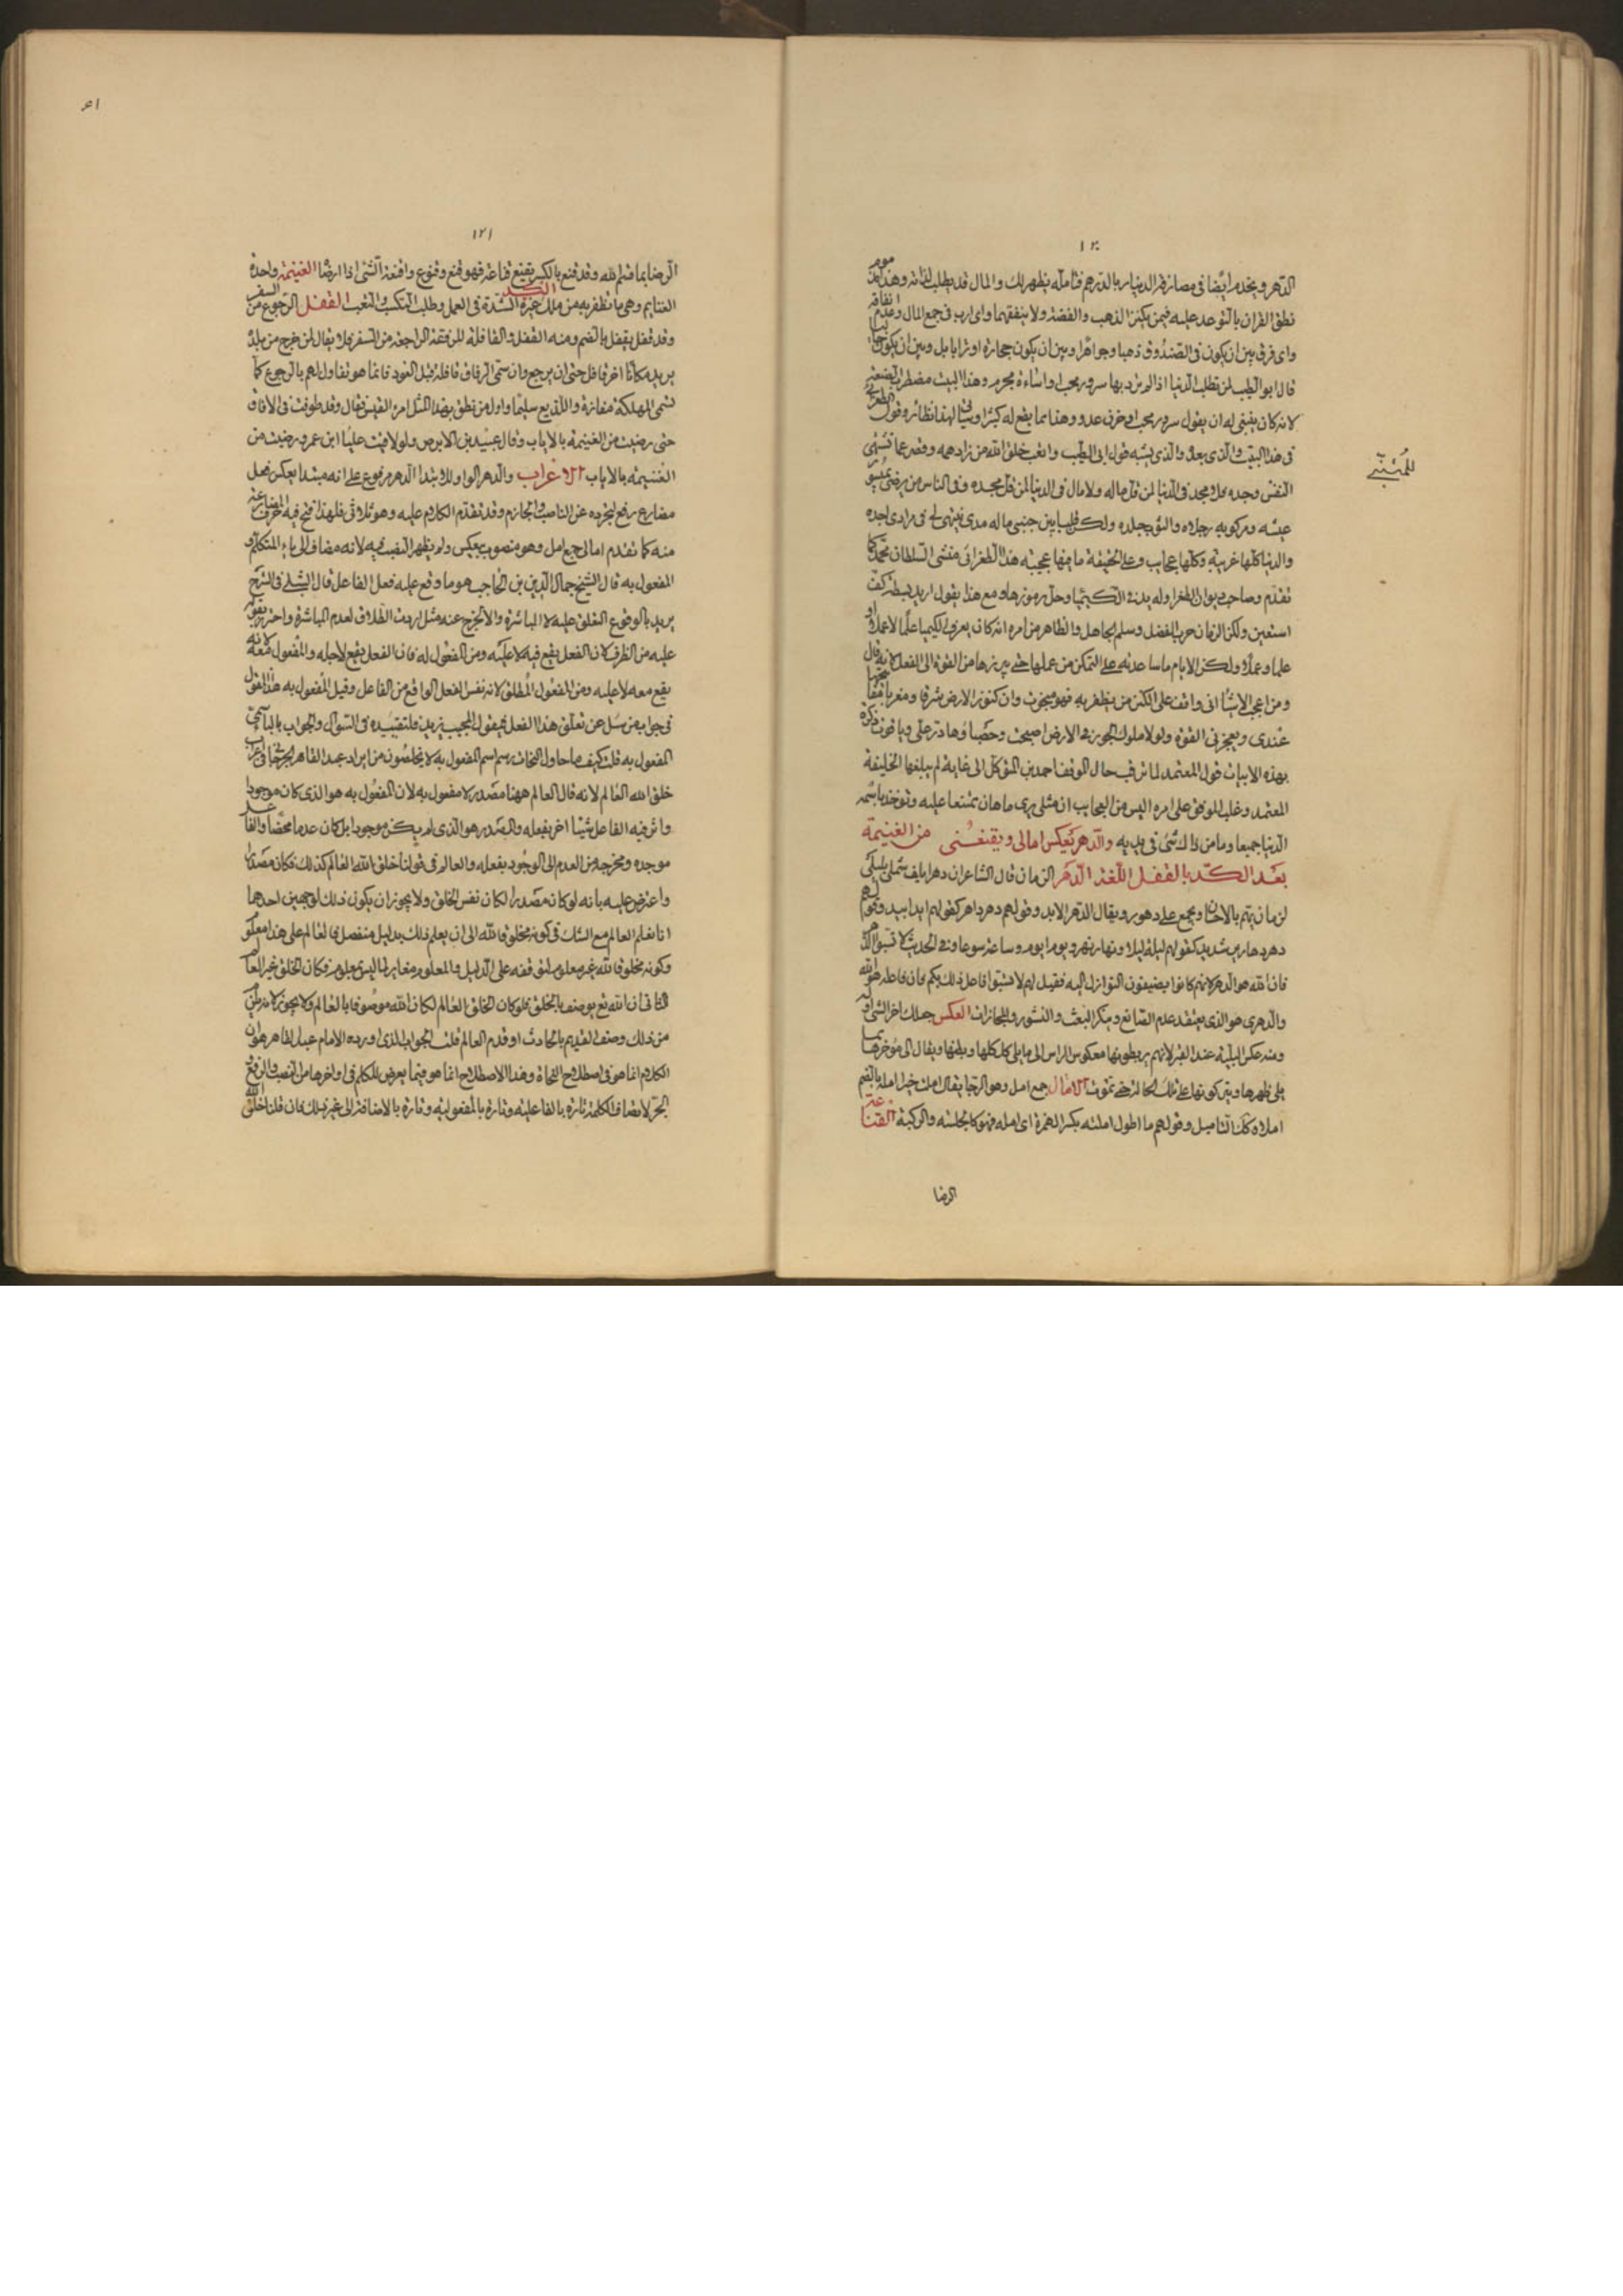 ١٢٠
الدهر ويخدم ايضا في مصارفة الدينار بالدرهم فتأمله يظهر لك والمال قد يطلب لذاته وهذا مذموم
نطق القران بالتوعد عليه فيمن يكنز الذهب والفضة ولا ينفقهما واي ارب في جمع المال وعدم انفاقه
واي فرق بين ان يكون في الصندوق ذهبا وجواهرا وبين ان يكون حجارة او ترابا بل وبين ان يكون
قال ابو الطيب لمن تطلب الدنيا اذا لم ترد بها سرور محب او اساءة مجرم وهذا البيت مضطرب الصنعة
لانه كان ينبغي له ان يقول سرور محب او حزن عدو وهذا مما يقع له كثيرا
في هذا البيت والذي بعده والذي يشبه قول ابي الطيب واتعب خلق الله من زاد همه وقصر عما تشتهي
النفس وجده فلا مجد في الدنيا لمن قل ماله ولا مال في الدنيا لمن قل مجده وفي الناس من يرضى بميسور
عيشه ومركوبه رجلاه والثوب جلده ولكن قلبا بين جنبي ماله مدى ينتهي لي في مراد احده
والدنيا كلها غريبة وكلها عجايب وعلى الحقيقة ما فيها عجيبة هذا الطغرائي منشي السلطان محمد كما
تقدم وصاحب ديوان الطغرا وله يد في الكيميا وحل رموزها ومع هذا يقول اريد بسطة كف
استعين ولكن الزمان حرب الفضل وسلم الجاهل والظاهر من امره انه كان يعرف الكيميا علما لا عملا او
علما وعملا ولكن الايام ما ساعدته على التمكن من عملها حتى يبرزها من القوة الى الفعل لانه قال
ومن اعجب الاشيا اني واقف على الكنز من يظفر به فهو مبخوت وان كنوز الارض شرقا ومغربا
عندي ويعجزني القوة ولولا ملوك الجور في الارض اصبحت وحصباوها در علي وياقوت
بهذه الابيات قول المعتمد لما ترقب حال الموفق احمد بن المتوكل الى غاية لم يبلغها الخليفة
المعتمد وغلب الموفق على امره اليس من العجايب ان مثلي يرى ما هان ممتنعا عليه وتوخذ باسمه
الدنيا جميعا وما من ذاك شي في يديه والدهر يعكس امالي ويقنعني من الغنيمة
بعد الكد بالقفل اللغة الدهر الزمان قال الشاعر ان دهرا يلف شملي بليلى
لزمان يهم بالاحسان ويجمع على دهور ويقال الدهر الابد وقولهم دهر داهر كقولهم ابد ابيد وقولهم
دهر دهارير شديد كقولهم ليلة ليلا ونهار نهر ويوم ايوم وساعة سوعا وفي الحديث لا تسبوا الدهر
فان الله هو الدهر لانهم كانوا يضيفون النوازل اليه فقيل لهم لا تسبوا فاعل ذلك بكم فان فاعله هو الله
والدهري هو الذي يعتقد عدم الصانع وينكر البعث والنشور والمجازات العكس جعلك اخر الشي اوله
ومنه عكس البلية عند القبر لانهم يربطونها معكوس الراس الى ما يلي كلكلها وبطنها ويقال الى موخرها مما
يلي ظهرها ويتركونها على تلك الحالة حتى تموت الامال جمع امل وهو الرجا يقال املت خيرا امله بالضم
املا وكذلك التاميل وقولهم ما اطول املته بكسر الهمزة اي امله فهو كالجلسة والركبة القناعة
الرضا
للمتنبي
١٢١
الرضا بما قسم الله وقد قنع بالكسر يقنع قناعة فهو قنع وقنوع واقنعه الشي اذا ارضا الغنيمة واحدة
الغنايم وهي ما تظفر به من ملك غيرك الكد الشدة في العمل وطلب الكسب والتعب القفل الرجوع من السفر
وقد قفل يقفل بالضم ومنه القفل والقافلة للرفقة الراجعة من السفر فلا يقال لمن خرج من بلده
يريد مكانا اخر قافل حتى ان يرجع وان سمي الرفاق قافلة قبل العود فانما هو تفاول لهم بالرجوع كما
تسمى المهلكة مفازة واللديغ سليما واول من نطق بهذا المثل امرؤ القيس فقال وقد طوفت في الافاق
حتى رضيت من الغنيمة بالاياب وقال عبيد بن الابرص ولو لاقيت عليا ابن عمرو رضيت من
الغنيمة بالاياب الاعراب والدهر الواو للابتدا الدهر مرفوع على انه مبتدا يعكس فعل
مضارع رفع لتجرده عن الناصب والجازم وقد تقدم الكلام عليه وهو ثلاثي فلهذا فتح فيه حرف المضارعة
منه كما تقدم امالي جمع امل وهو منصوب بيعكس ولم يظهر النصب فيه لانه مضاف الى ياء المتكلم و
المفعول به قال الشيخ جمال الدين بن الحاجب هو ما وقع عليه فعل الفاعل قال الشيلي في الشرح
يريد بالوقوع التعلق عليه لا المباشرة والا لخرج عنه مثل اردت الطلاق لعدم المباشرة واحترز بقوله
عليه من الظرف لان الفعل يقع فيه لا عليه ومن المفعول له فان الفعل يقع لاجله والمفعول معه لانه
يقع معه لا عليه ومن المفعول المطلق لانه نفس الفعل الواقع من الفاعل وقيل المفعول به هذا القول
في جواب من سئل عن تعلق هذا الفعل فيقول المجيب بزيد فلتقييده في السوال والجواب بالبا سمي
المفعول به قلت كيف ما حاول النحات رسم اسم المفعول به لا يخلصون من ايراد عبد القاهر الجرجاني
خلق الله العالم لانه قال العالم ههنا مصدر لا مفعول به لان المفعول به هو الذي كان موجودا
واثر فيه الفاعل شيئا اخر بفعله والمصدر هو الذي لم يكن موجودا بل كان عدما محضا والفاعل
موجده ومخرجه من العدم الى الوجود بفعله والعالم في قولنا خلق الله العالم كذلك فكان مصدرا
واعترض عليه بانه لو كان مصدرا لكان نفس الخلق ولا يجوز ان يكون ذلك لوجهين احدهما
انا نعلم العالم مع الشك في كونه مخلوقا لله الى ان يعلم ذلك بدليل منفصل فالعالم على هذا معلوم
وكونه مخلوقا لله غير معلوم لتوقفه على الدليل والمعلوم مغاير لما ليس بمعلوم فكان الخلق غير العالم
الثاني ان الله تع يوصف بالخلق فلو كان الخلق العالم لكان الله موصوفا بالعالم ولا يجوز لانه يلزم
من ذلك وصف القديم بالحادث او قدم العالم قلت الجواب الذي اورده الامام عبد القاهر هو ان
الكلام انما هو في اصطلاح النحاة وهذا الاصطلاح انما هو فيما يعرض للكلم في اواخرها من النصب والرفع و
الجر لاتصاف الكلمة تارة بالفاعلية وتارة بالمفعولية وتارة بالاضافة الى غير ذلك فان قلنا خلق الله